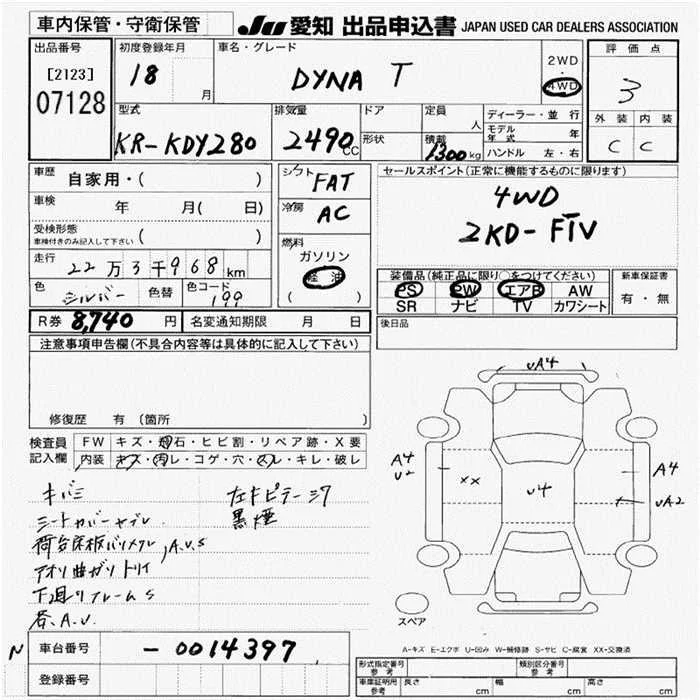 車内保管・守衛保管 JU 愛知 出品申込書 JAPAN USED CAR DEALERS ASSOCIATION
出品番号 初度登録年月 車名・グレード 2WD 評価点
[2123] 18 月 DYNA T ・ 3
07128 4WD
型式 排気量 ドア 定員 人 ディーラー・並行 外装 内装
KR-KDY280 2490 CC 形状 積載 1300 kg モデル年式 年 C C
ハンドル 左・右
車歴 自家用・( ) シフト FAT セールスポイント(正常に機能するものに限ります)
車検 年 月( 日) 冷房 AC 4WD
受検形態 ( ) 2KD-FTV
車検付きのみ記入して下さい
走行 22万3千968km 燃料 ガソリン
軽油 装備品(純正品に限り○をつけてください) 新車保証書
色 シルバー 色替 色コード 199 ( ) PS PW エアB AW 有・無
SR ナビ TV カワシート
R券 8,740 円 名変通知期限 月 日 後日品
注意事項申告欄(不具合内容等は具体的に記入して下さい)
修復歴 有(箇所 )
検査員 FW キズ・飛石・ヒビ割・リペア跡・X要
記入欄 内装 キズ・汚レ・コゲ・穴・スレ・キレ・破レ
キバミ 左キピラーミワ
シートカバーヤブレ 黒煙
荷台床板バリメクレ,A.U.S
アオリ曲ガリ トリイ
下廻リフレームS
各.A.U.
UA4
A4 A4
U2 XX U4 UA2
スペア
A-キズ E-エクボ U-凹み W-補修跡 S-サビ C-腐食 XX-交換済
N 車台番号 -0014397
登録番号
形式指定番号 参考 類別区分番号 参考
車庫証明用 参考 長さ cm 幅 cm 高さ cm